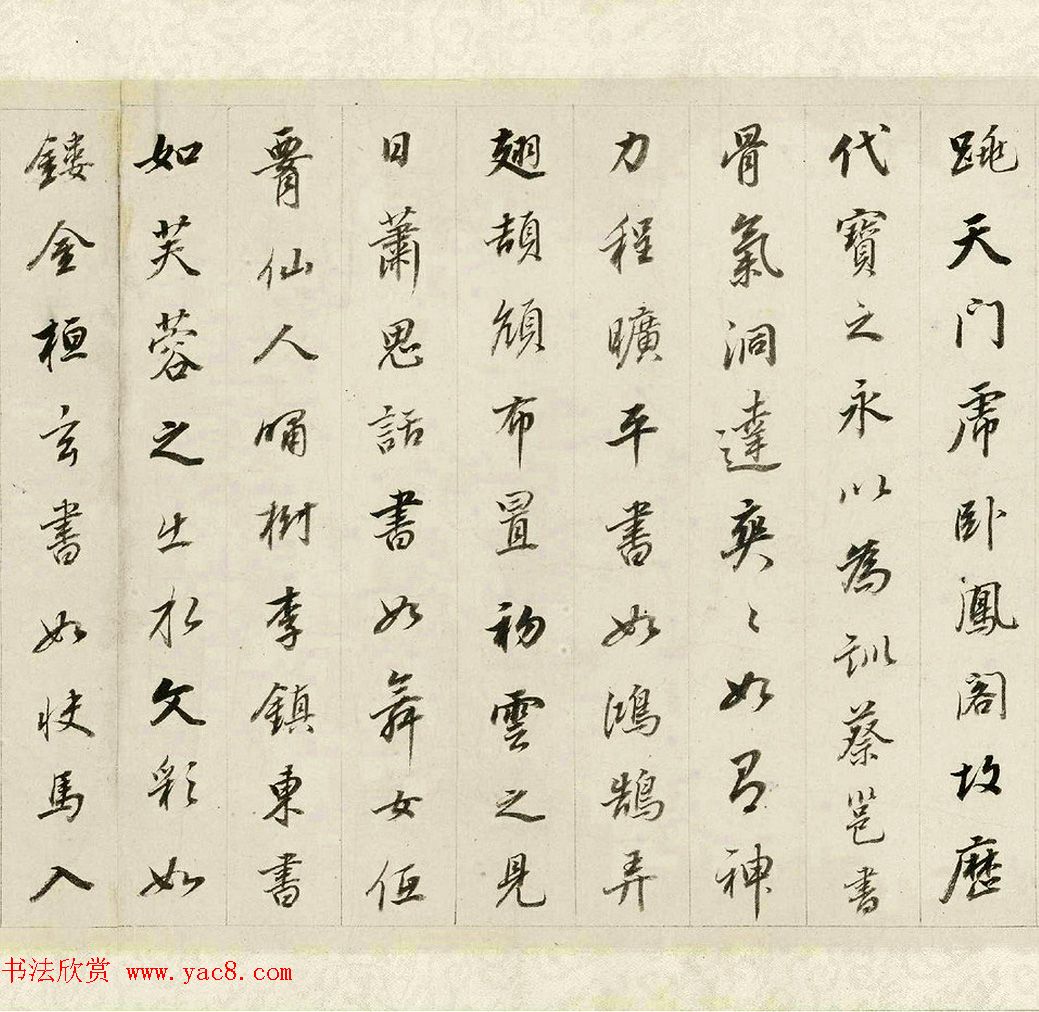 跳天门虎卧鳳阁故歷
代寶之永以為訓蔡邕書
骨氣洞達爽〻如有神
力程曠平書如鴻鵠弄
翅頡頏布置初雲之見
日蕭思話書如舞女低
䏿仙人嘯樹李鎮東書
如芙蓉之出水文彩如
鏤金桓玄書如快馬入
书法欣赏 www.yac8.com